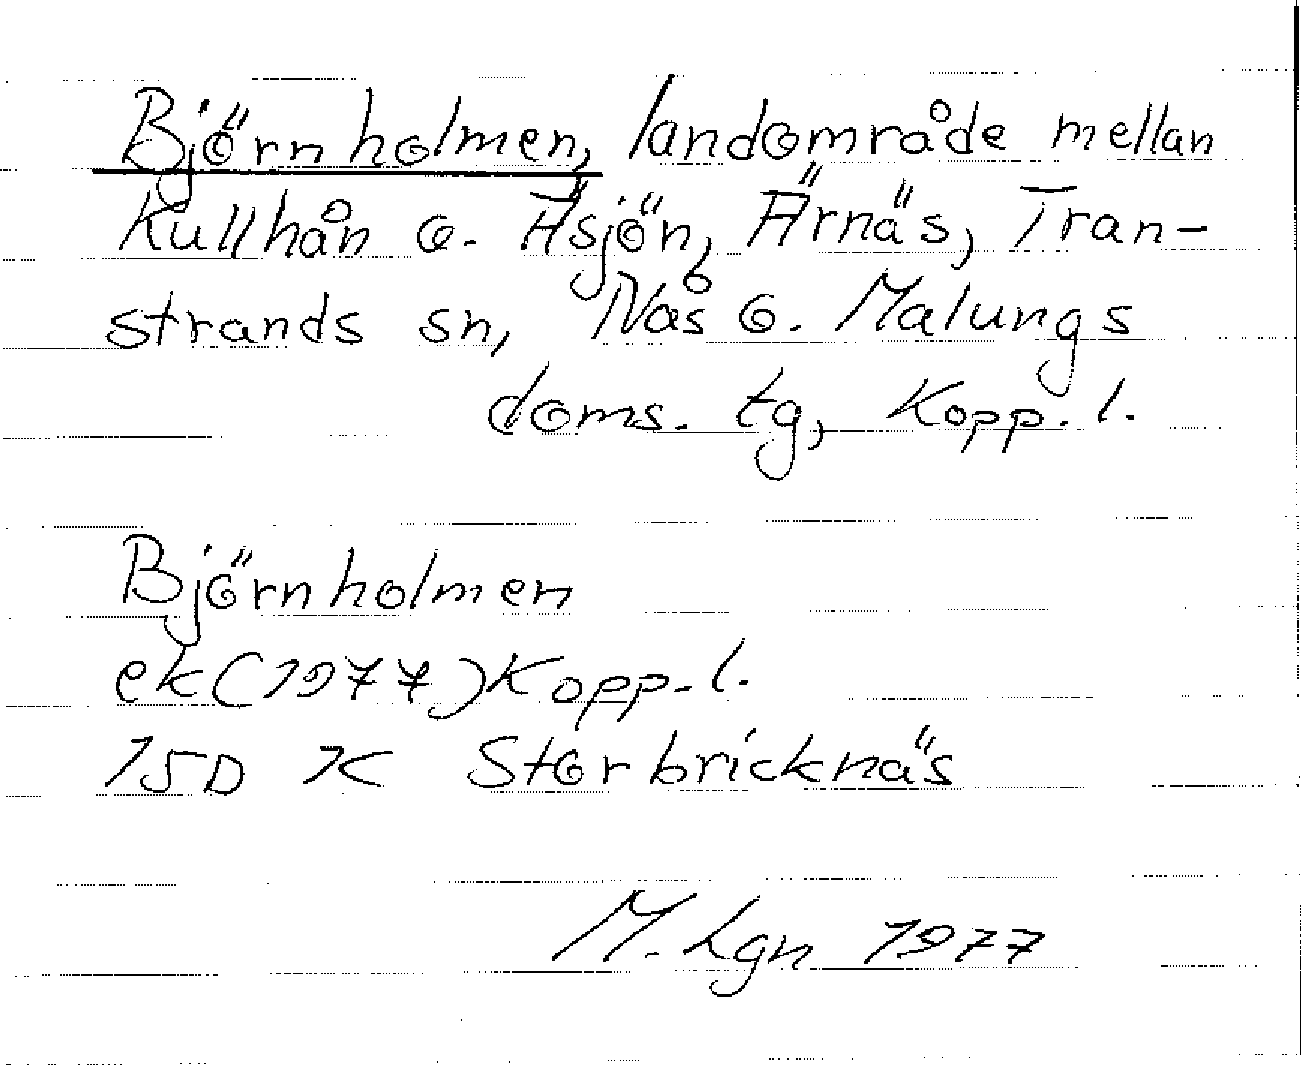 Björnholmen, landområde mellan
Kullhån o. Äsjön, Ärnäs, Tran-
strands sn, Nås o. Malungs
doms. tg, Kopp. l.
Björnholmen
ek(1977)Kopp. l.
15D K Storbricknäs
M. Lgn 1977